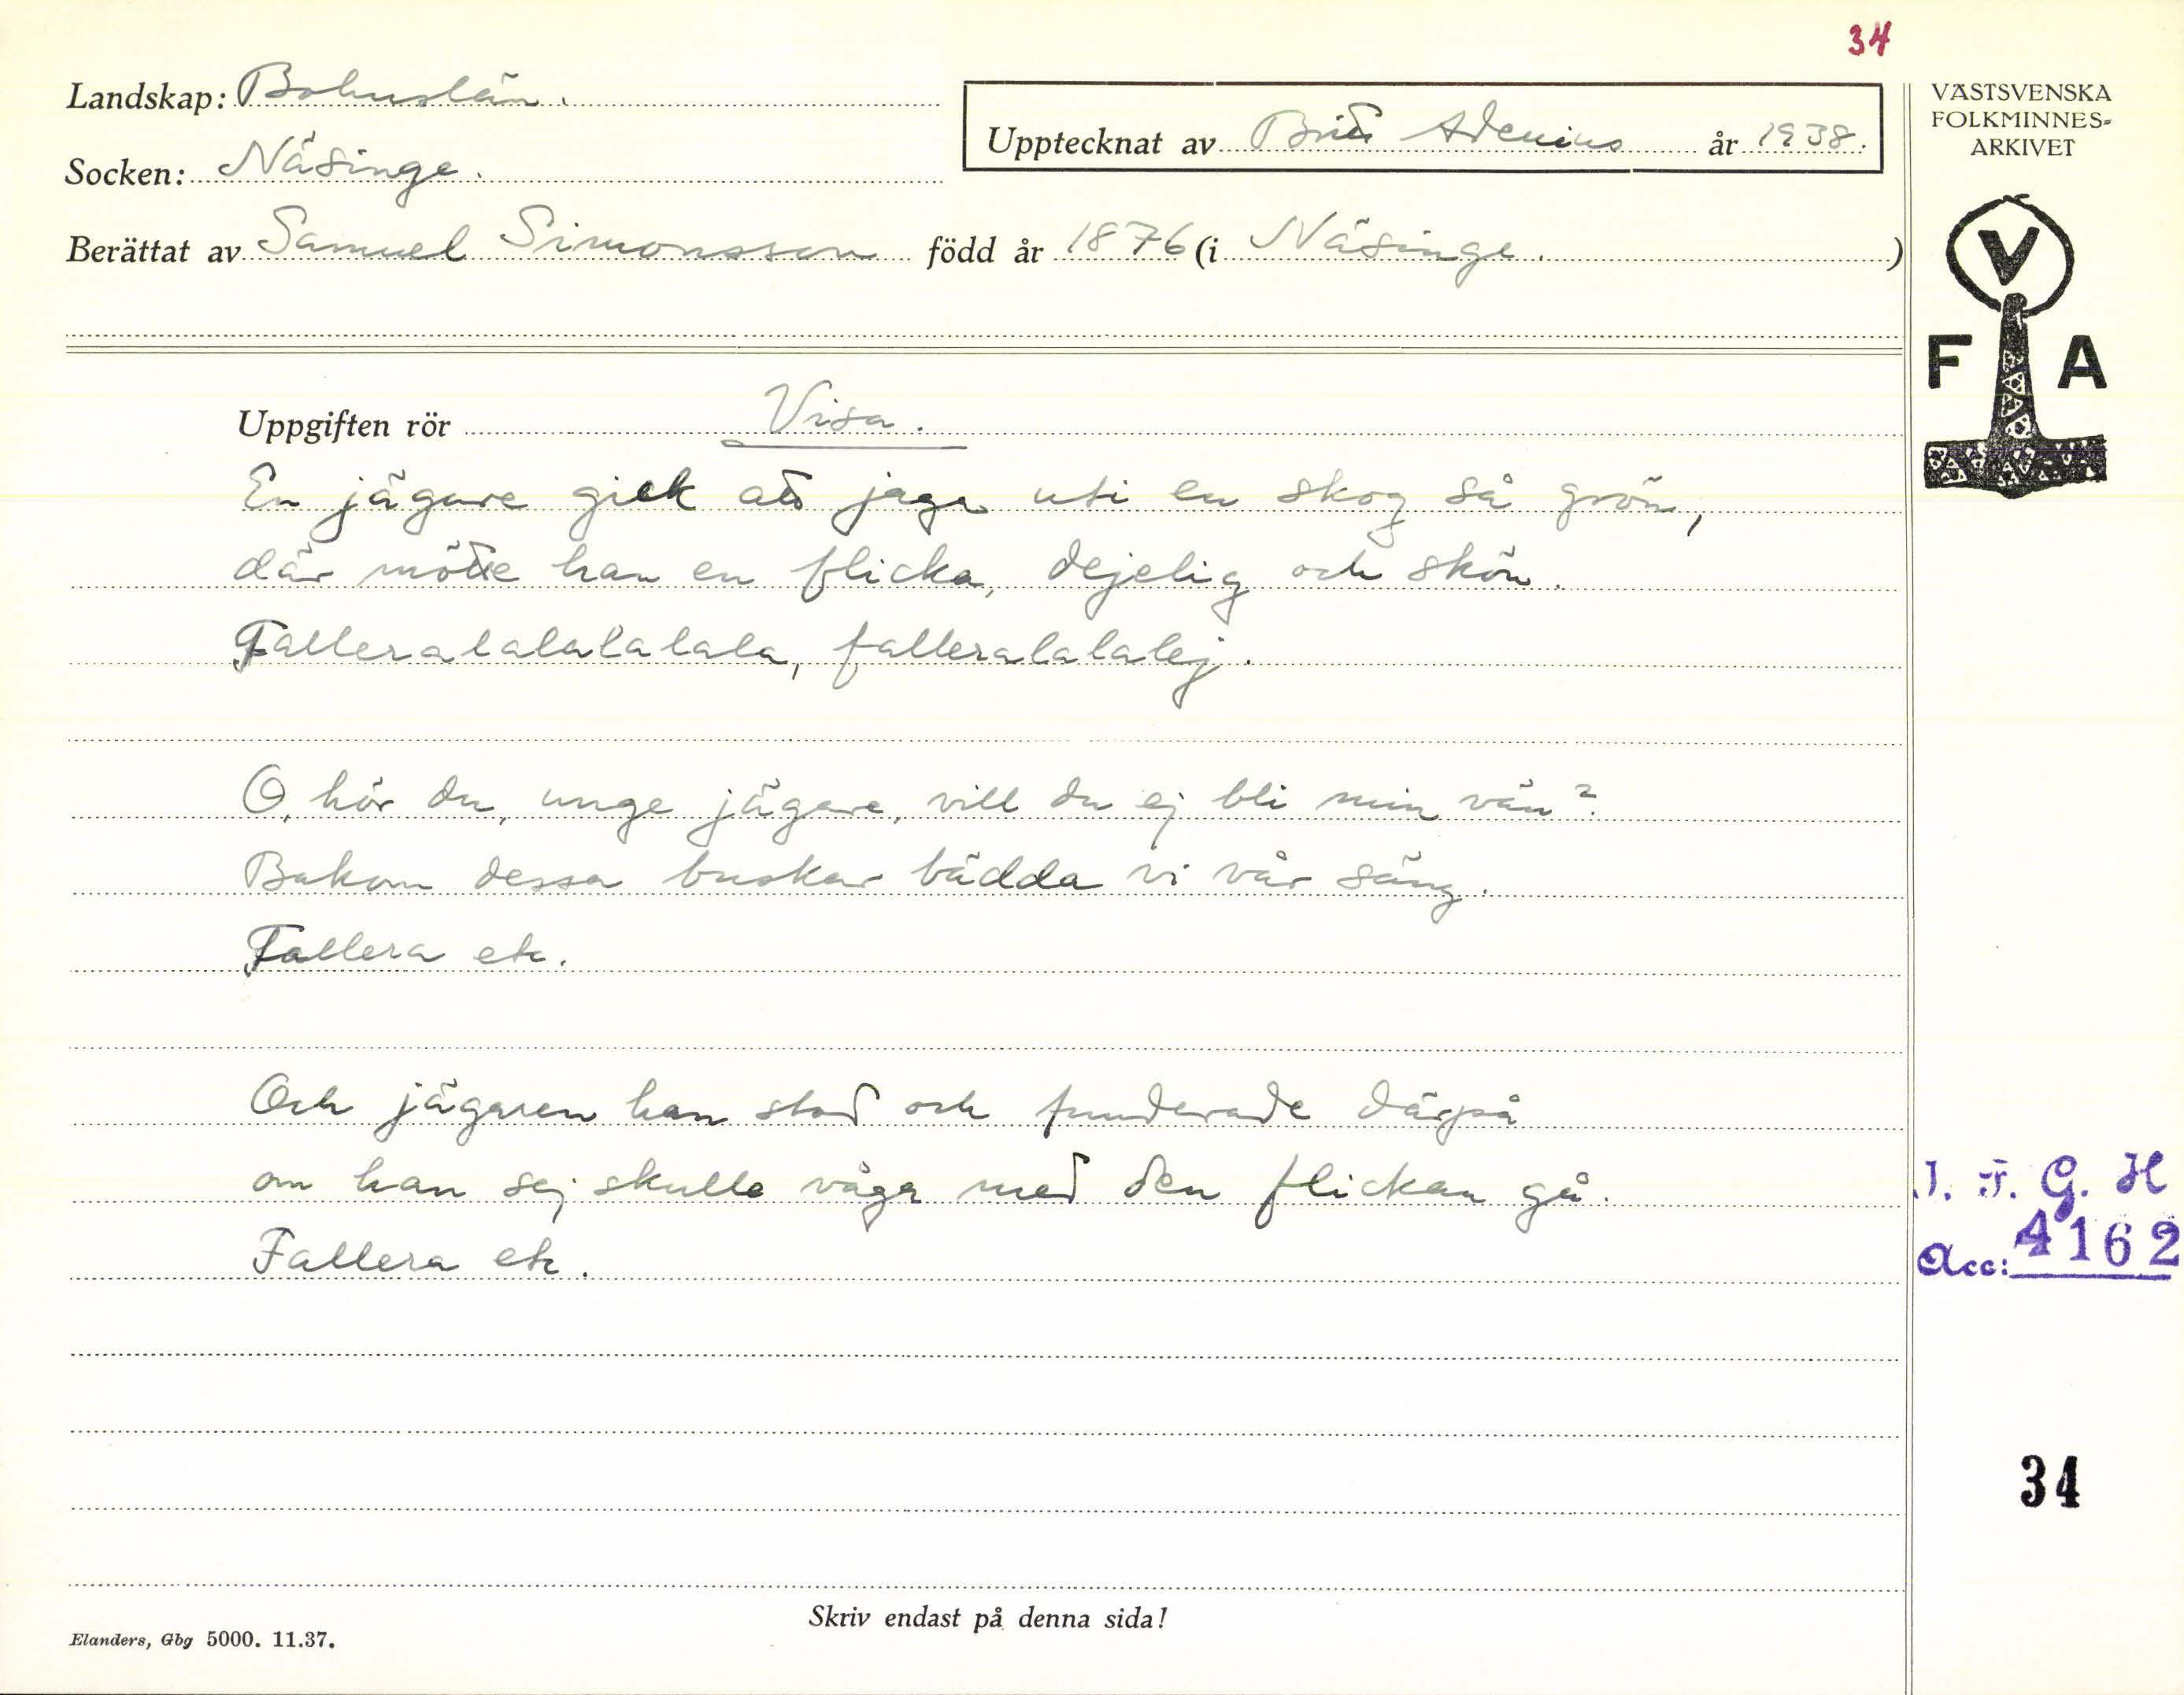 34
Landskap: Bohuslän.
Socken: Näsinge.
Upptecknat av Brita Adenius år 1938.
Berättat av Samuel Simonsson född år 1876 (i Näsinge.)
VÄSTSVENSKA
FOLKMINNES-
ARKIVET
V
F A
Uppgiften rör Visa.
En jägare gick att jaga uti en skog så grön,
där mötte han en flicka, dejelig och skön.
Falleralalalalala, falleralalalej.
O, hör du, unge jägare, vill du ej bli min vän?
Bakom dessa buskar bädda vi vår säng.
Fallera etc.
Och jägaren han stod och funderade därpå
om han sej skulle våga med den flickan gå.
Fallera etc.
I. F. G. H
Acc: 4162
34
Skriv endast på denna sida!
Elanders, Gbg 5000. 11.37.